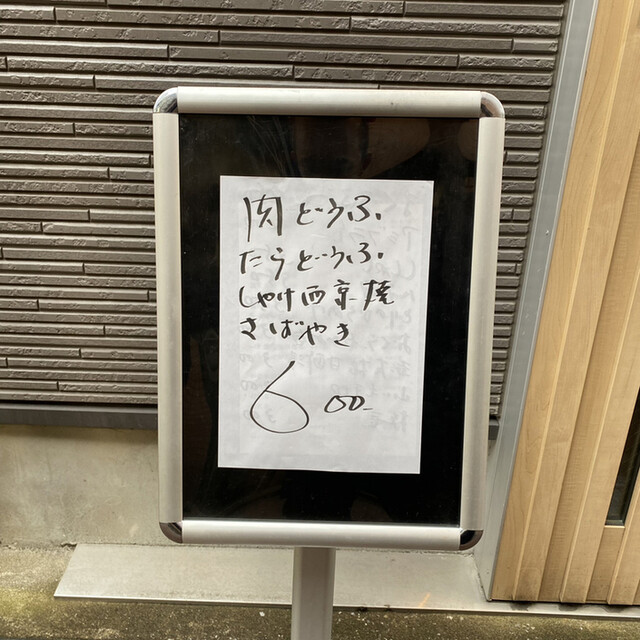 肉どうふ、
たらどうふ、
しゃけ西京焼
さばやき
600-